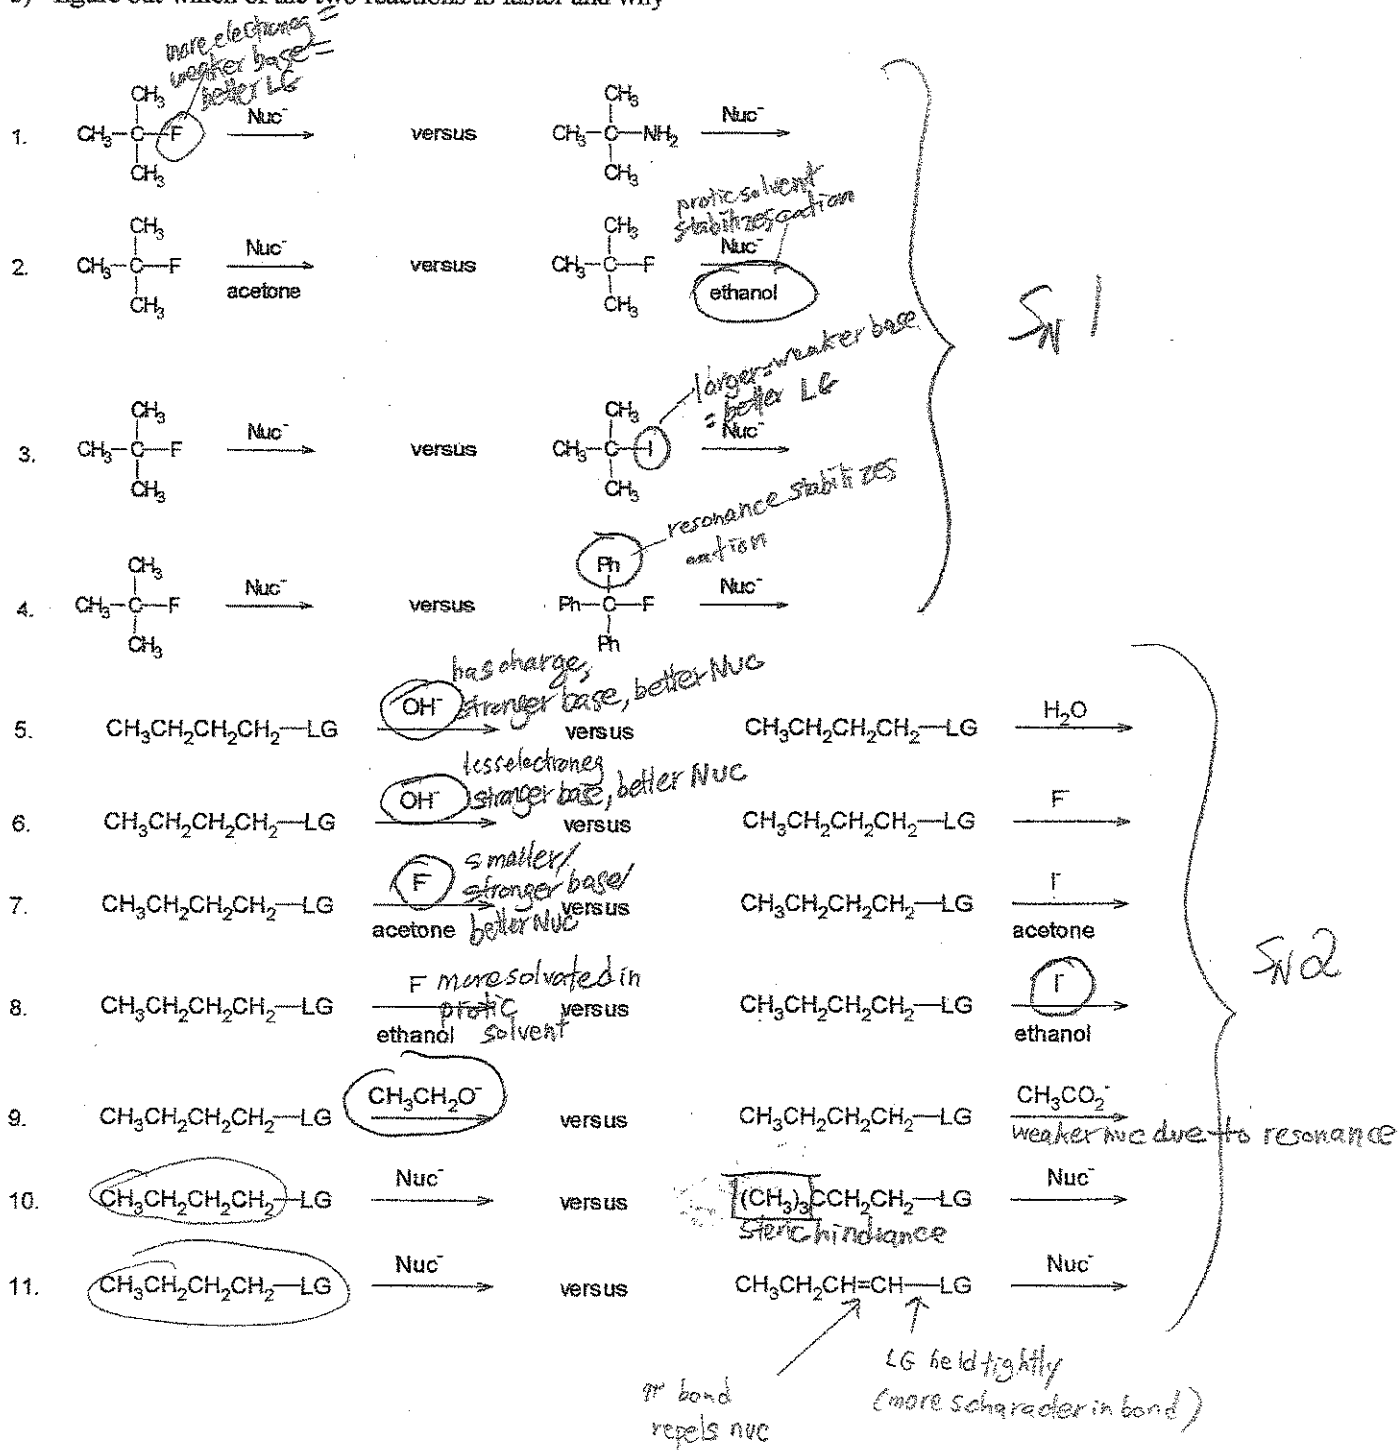 b) figure out which of the two reactions is faster and why
more electroneg =
weaker base =
better LG
CH₃ CH₃
1. CH₃-C-F Nuc⁻ versus CH₃-C-NH₂ Nuc⁻
CH₃ CH₃
protic solvent
stabilizes cation
CH₃ CH₃
2. CH₃-C-F Nuc⁻ versus CH₃-C-F Nuc⁻
acetone ethanol
CH₃ CH₃
SN1
larger=weaker base
= better LG
CH₃ CH₃
3. CH₃-C-F Nuc⁻ versus CH₃-C-I Nuc⁻
CH₃ CH₃
resonance stabilizes
cation
CH₃ Ph
4. CH₃-C-F Nuc⁻ versus Ph-C-F Nuc⁻
CH₃ Ph
has charge,
stronger base, better Nuc
5. CH₃CH₂CH₂CH₂—LG OH⁻ versus CH₃CH₂CH₂CH₂—LG H₂O
less electroneg
stronger base, better Nuc
6. CH₃CH₂CH₂CH₂—LG OH⁻ versus CH₃CH₂CH₂CH₂—LG F⁻
smaller/
stronger base/
better Nuc
7. CH₃CH₂CH₂CH₂—LG F⁻ versus CH₃CH₂CH₂CH₂—LG I⁻
acetone acetone
SN2
more solvated in
protic
solvent
8. CH₃CH₂CH₂CH₂—LG F⁻ versus CH₃CH₂CH₂CH₂—LG I⁻
ethanol ethanol
9. CH₃CH₂CH₂CH₂—LG CH₃CH₂O⁻ versus CH₃CH₂CH₂CH₂—LG CH₃CO₂⁻
weaker nuc due to resonance
10. CH₃CH₂CH₂CH₂—LG Nuc⁻ versus (CH₃)₃CCH₂CH₂—LG Nuc⁻
steric hindrance
11. CH₃CH₂CH₂CH₂—LG Nuc⁻ versus CH₃CH₂CH=CH—LG Nuc⁻
π bond
repels nuc
LG held tightly
(more s character in bond)